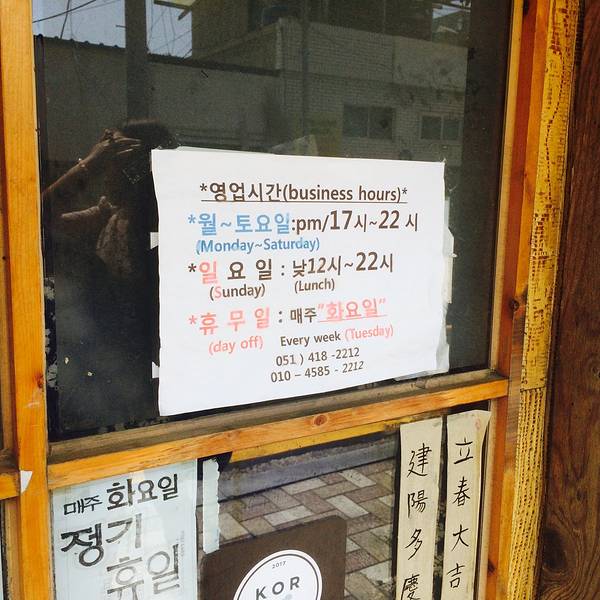 *영업시간(business hours)*
*월~토요일:pm/17시~22 시
(Monday~Saturday)
*일 요 일 : 낮12시~22시
(Sunday) (Lunch)
*휴 무 일 : 매주"화요일"
(day off) Every week (Tuesday)
051 ) 418 -2212
010 – 4585 - 2212
매주 화요일
정기
휴일
2017
KOR
立春大吉
建陽多慶